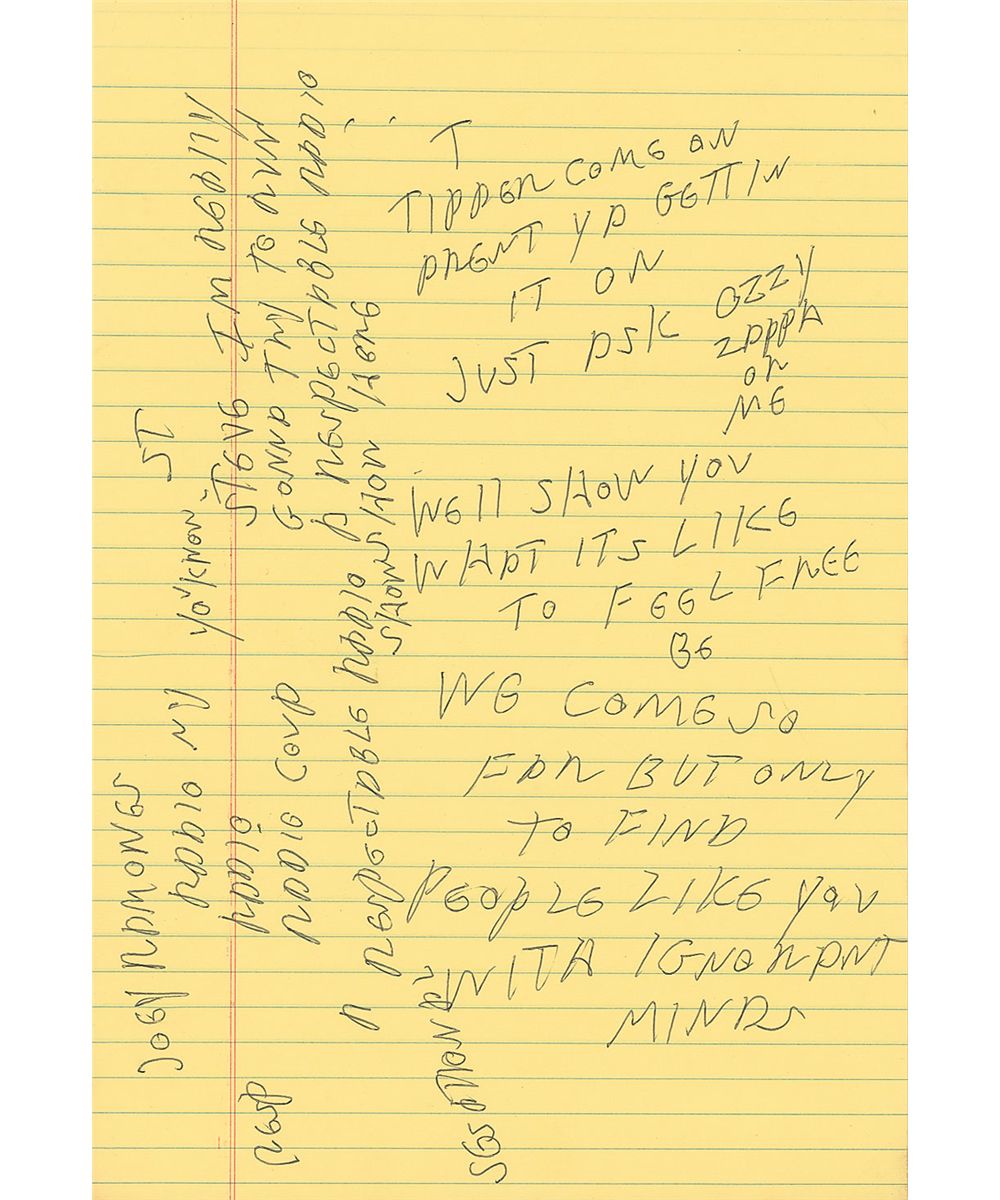 T
TIPPER COME ON
ARENT YA GETTIN
IT ON
JUST ASK OZZY
ZAPPA
OR
ME
WELL SHOW YOU
WHAT ITS LIKE
TO FEEL FREE
BE
WE COME SO
FAR BUT ONLY
TO FIND
PEOPLE LIKE YOU
WITH IGNORANT
MINDS
JOEY RAMONES
RADIO MY
YA KNOW ST
RADIO
STEVE IM REALLY
RADIO COUP
GONNA TRY TO RUN
A RESPECTABLE RADIO
A RESPECTABLE RADIO
SHOW
SHOW HERE
RESP